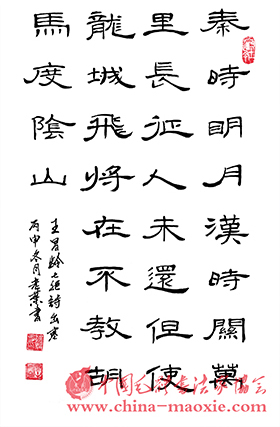 秦時明月漢時關萬
里長征人未還但使
龍城飛將在不教胡
馬度陰山
王昌齡七絕詩出塞
丙申冬月書
www.china-maoxie.com